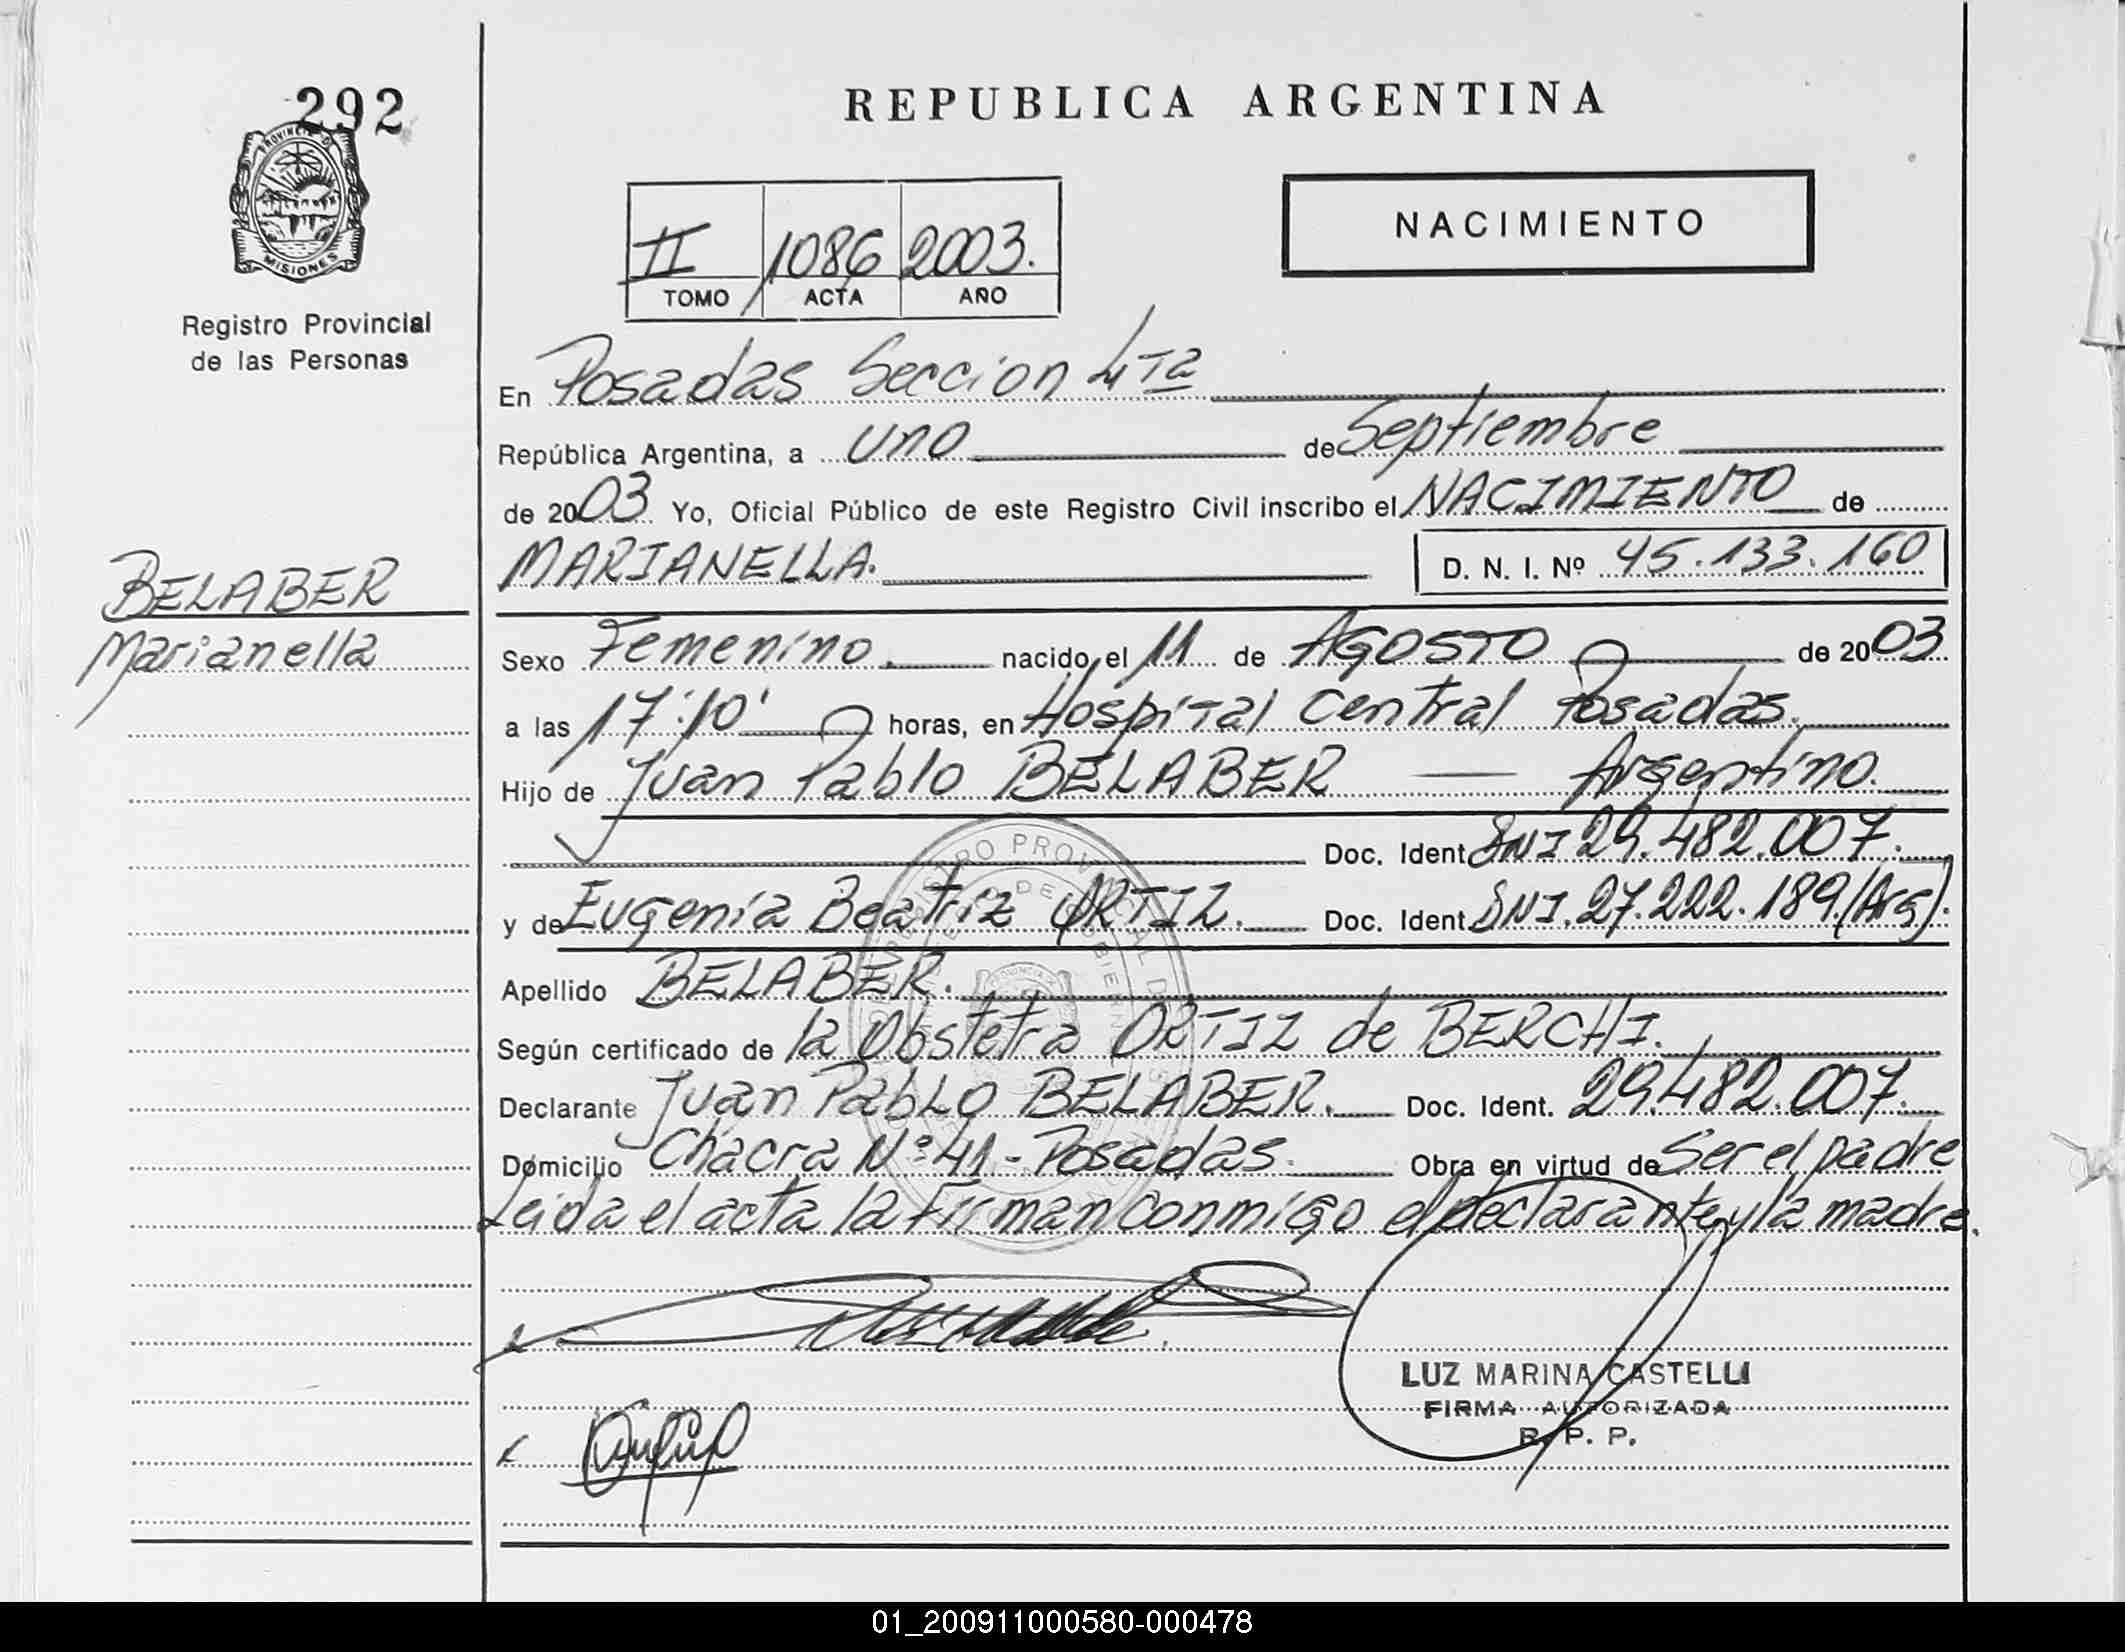 292
PROVINCIA D
MISIONES
Registro Provincial
de las Personas
BELABER
Marianella
REPUBLICA ARGENTINA
II 1086 2003.
TOMO ACTA AÑO
NACIMIENTO
En Posadas Seccion 4Ta
República Argentina, a uno de Septiembre
de 2003 Yo, Oficial Público de este Registro Civil inscribo el NACIMIENTO de
MARIANELLA. D. N. I. Nº 45.133.160
Sexo Femenino. nacido el 11 de AGOSTO de 2003
a las 17:10' horas, en Hospital Central Posadas.
Hijo de Juan Pablo BELABER — Argentino.
Doc. Ident. DNI 29.482.007.
y de Eugenia Beatriz ORTIZ. Doc. Ident. DNI.27.222.189.(Arg).
Apellido BELABER.
Según certificado de la Obstetra ORTIZ de BERCHI.
Declarante Juan Pablo BELABER. Doc. Ident. 29.482.007.
Domicilio Chacra Nº 41 - Posadas. Obra en virtud de Ser el padre
Leida el acta la Firman conmigo el declarante y la madre.
LUZ MARINA CASTELLI
FIRMA AUTORIZADA
R. P. P.
01_200911000580-000478